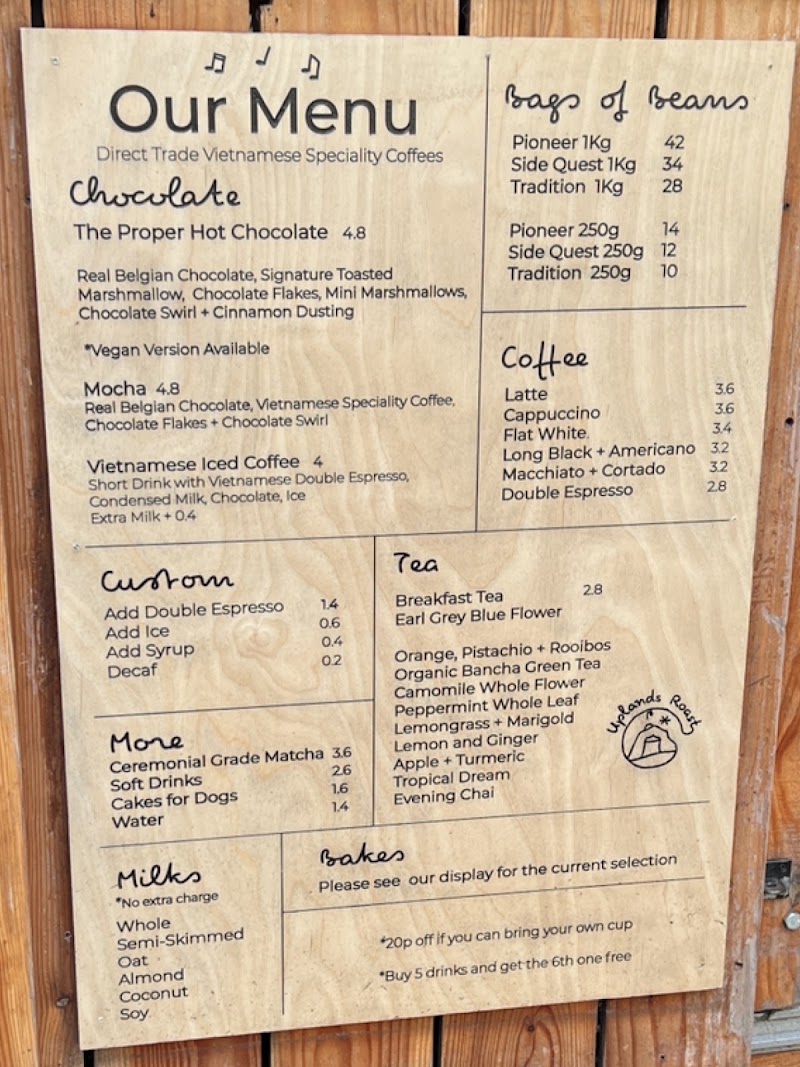 Our Menu
Direct Trade Vietnamese Speciality Coffees
Chocolate
The Proper Hot Chocolate 4.8
Real Belgian Chocolate, Signature Toasted
Marshmallow, Chocolate Flakes, Mini Marshmallows,
Chocolate Swirl + Cinnamon Dusting
*Vegan Version Available
Mocha 4.8
Real Belgian Chocolate, Vietnamese Speciality Coffee,
Chocolate Flakes + Chocolate Swirl
Vietnamese Iced Coffee 4
Short Drink with Vietnamese Double Espresso,
Condensed Milk, Chocolate, Ice
Extra Milk + 0.4
Bags of Beans
Pioneer 1Kg 42
Side Quest 1Kg 34
Tradition 1Kg 28
Pioneer 250g 14
Side Quest 250g 12
Tradition 250g 10
Coffee
Latte 3.6
Cappuccino 3.6
Flat White 3.4
Long Black + Americano 3.2
Macchiato + Cortado 3.2
Double Espresso 2.8
Custom
Add Double Espresso 1.4
Add Ice 0.6
Add Syrup 0.4
Decaf 0.2
Tea
Breakfast Tea 2.8
Earl Grey Blue Flower
Orange, Pistachio + Rooibos
Organic Bancha Green Tea
Camomile Whole Flower
Peppermint Whole Leaf
Lemongrass + Marigold
Lemon and Ginger
Apple + Turmeric
Tropical Dream
Evening Chai
Uplands Roast
More
Ceremonial Grade Matcha 3.6
Soft Drinks 2.6
Cakes for Dogs 1.6
Water 1.4
Milks
*No extra charge
Whole
Semi-Skimmed
Oat
Almond
Coconut
Soy
Bakes
Please see our display for the current selection
*20p off if you can bring your own cup
*Buy 5 drinks and get the 6th one free